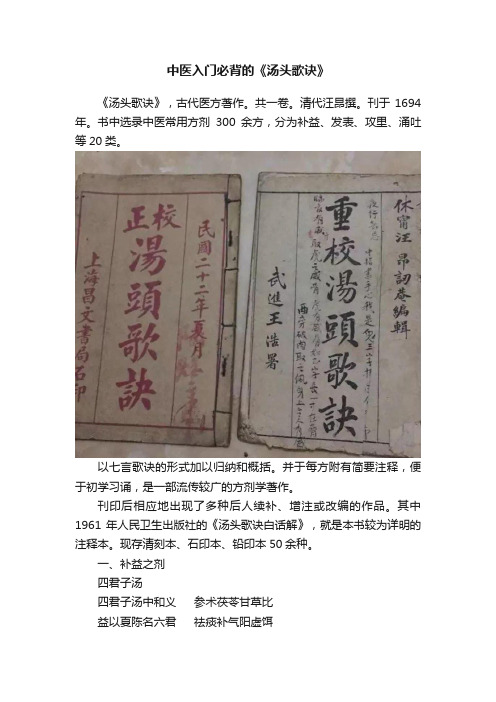 中医入门必背的《汤头歌诀》
《汤头歌诀》，古代医方著作。共一卷。清代汪昂撰。刊于1694
年。书中选录中医常用方剂300余方，分为补益、发表、攻里、涌吐
等20类。
民國二十二年夏月
校正
湯頭歌訣
上海昌文書局石印
休甯汪昂訒菴編輯
重校湯頭歌訣
武進王浩署
以七言歌诀的形式加以归纳和概括。并于每方附有简要注释，便
于初学习诵，是一部流传较广的方剂学著作。
刊印后相应地出现了多种后人续补、增注或改编的作品。其中
1961年人民卫生出版社的《汤头歌诀白话解》，就是本书较为详明的
注释本。现存清刻本、石印本、铅印本50余种。
一、补益之剂
四君子汤
四君子汤中和义 参术茯苓甘草比
益以夏陈名六君 祛痰补气阳虚饵